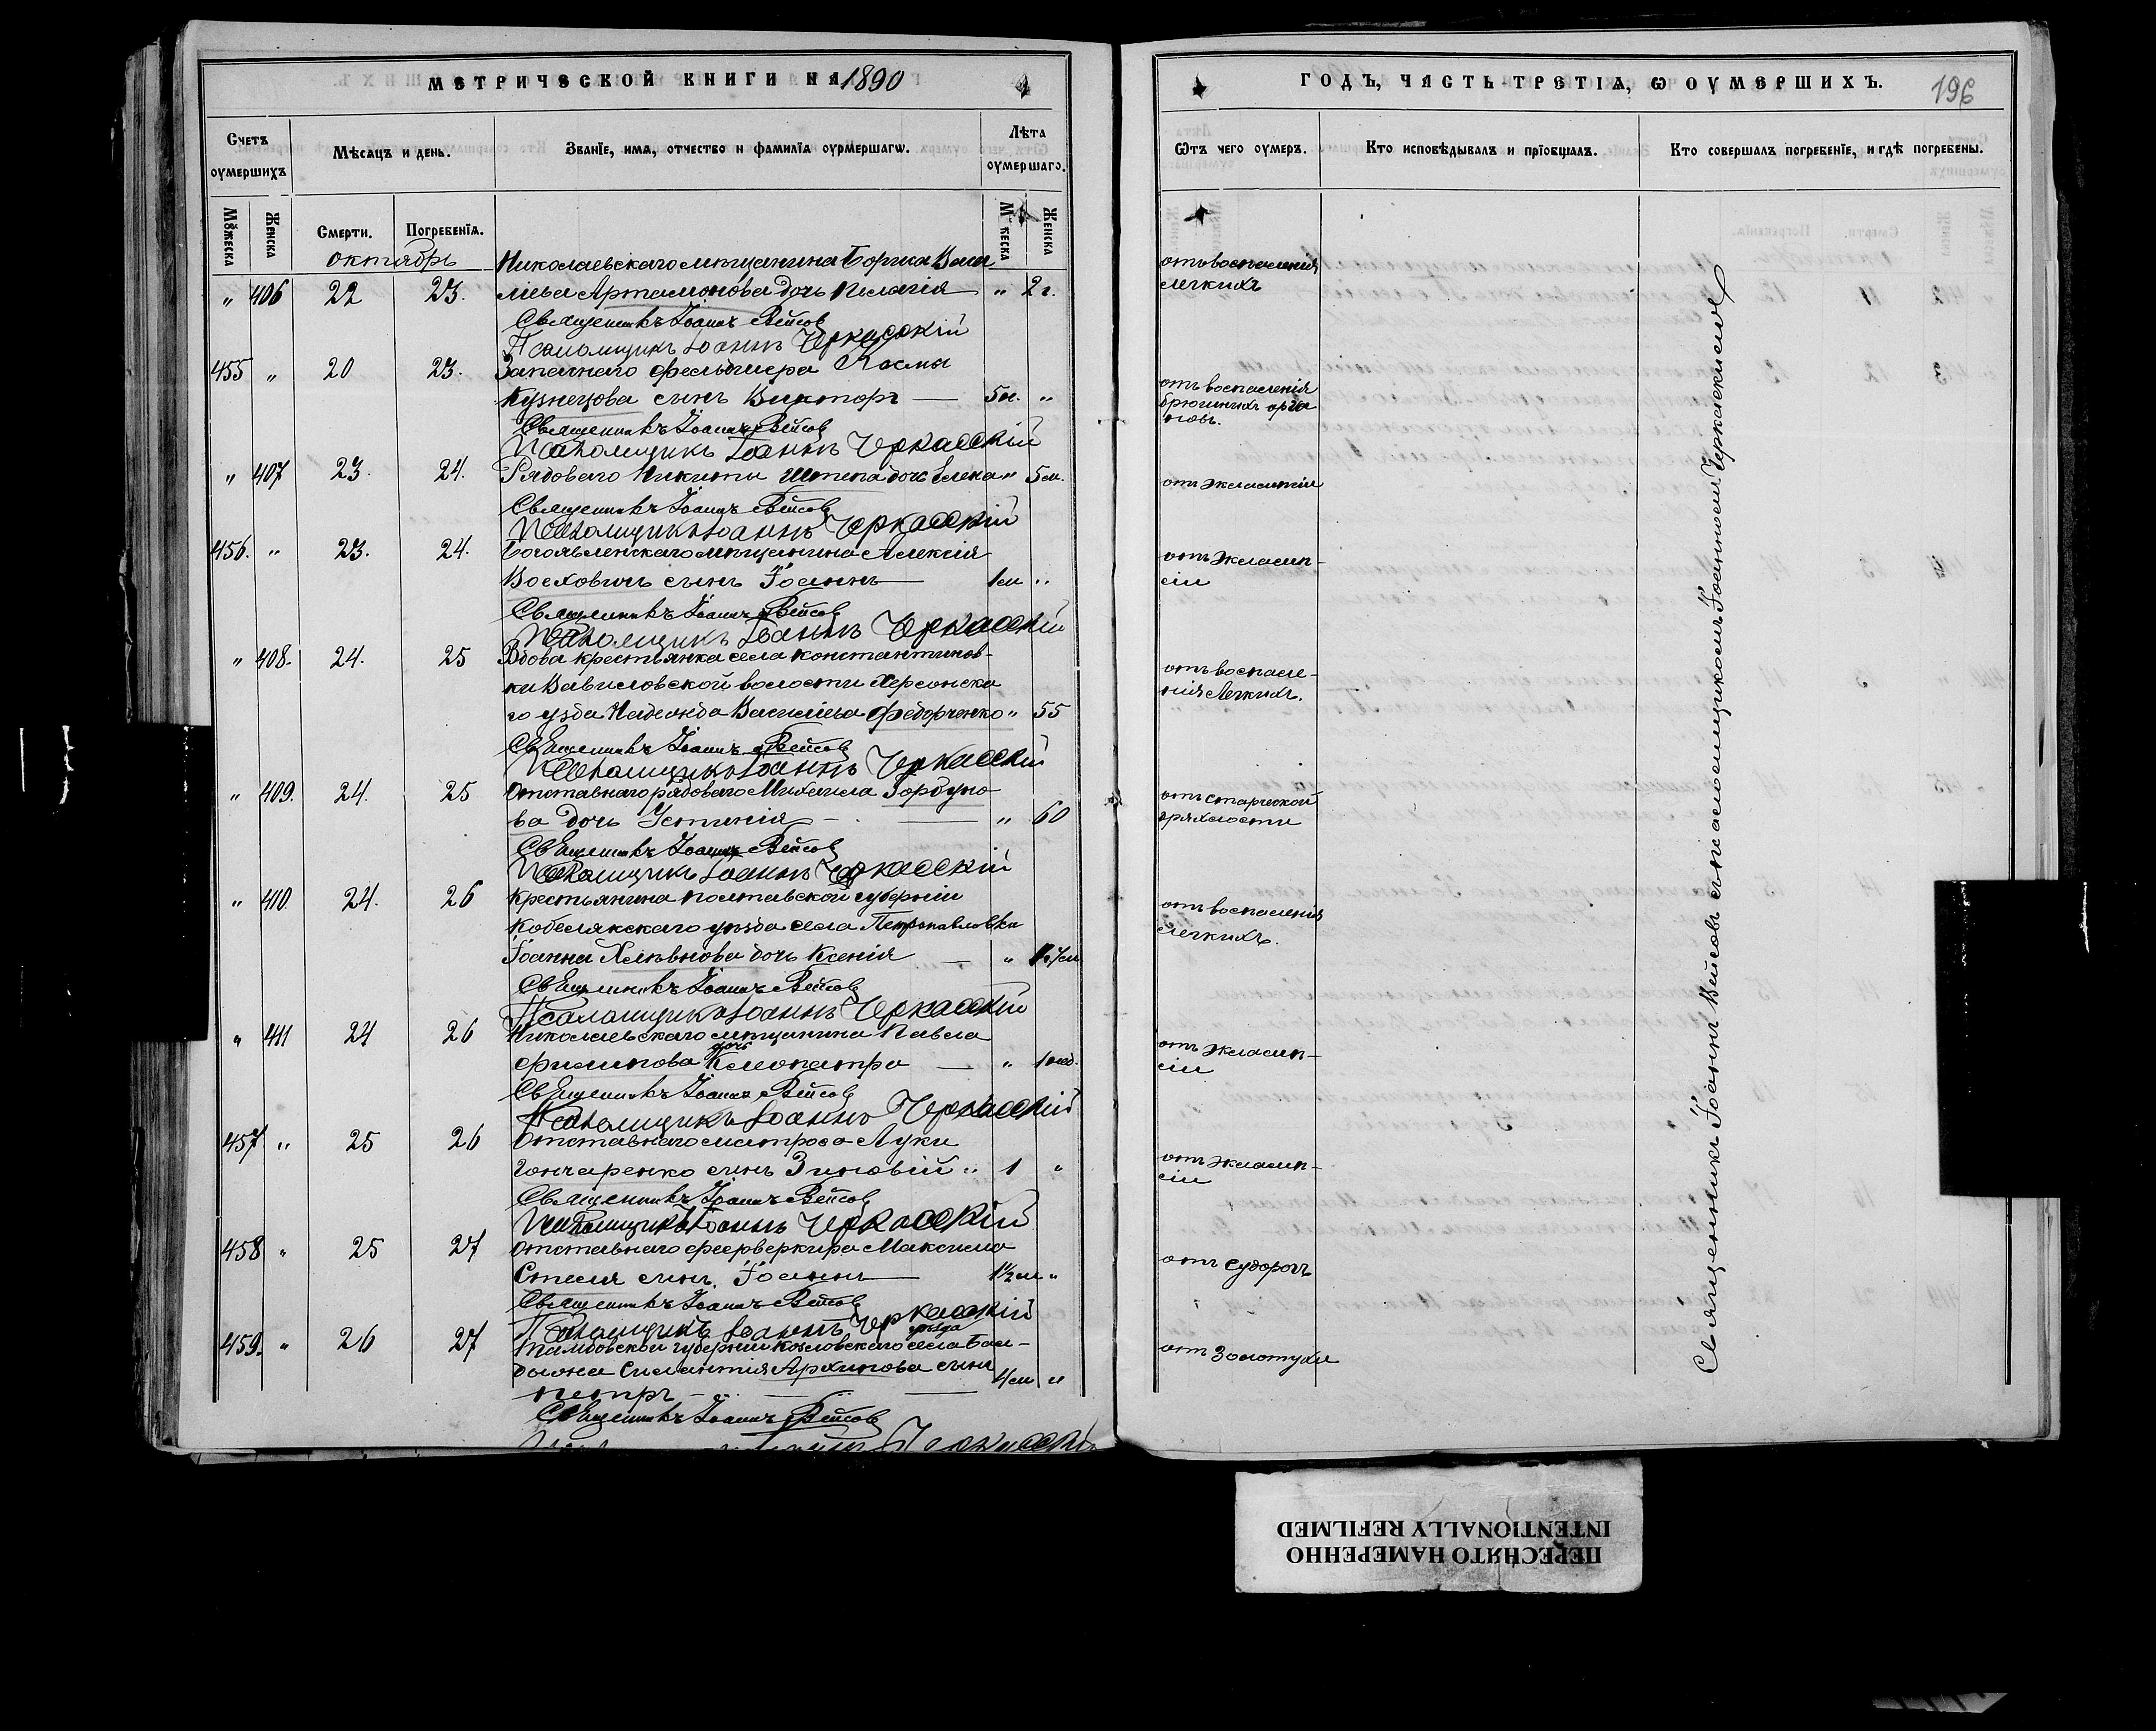 МЕТРИЧЕСКОЙ КНИГИ НА 1890
Счетъ оумершихъ
Мѣсяцъ и день.
Званїе, имя, отчество и фамилїя оумершагѡ.
Лѣта оумершаго.
Мꙋжеска
Женска
Смерти.
Погребенїя.
Мꙋжеска
Женска
октябрь
Николаевскаго мѣщанина Бориса Васи
" 406 22 23. лїева Артамонова дочь Пелагія " 2 г.
Священникъ Іоаннъ Вейсов
Псаломщикъ Іоаннъ Черкасскій
455 " 20 23. Запаснаго фельдшера Космы
Кузнецова сынъ Викторъ — 5 м. "
Священникъ Іоаннъ Вейсов
Псаломщикъ Іоаннъ Черкасскій
" 407 23. 24. Рядоваго Никиты Штепа дочь Елена " 5 м.
Священникъ Іоаннъ Вейсов
Псаломщикъ Іоаннъ Черкасскій
456. " 23. 24. Богоявленскаго мѣщанина Алексія
сынъ Іоаннъ — 1 м "
Священникъ Іоаннъ Вейсов
Псаломщикъ Іоаннъ Черкасскій
" 408. 24. 25 Вдова крестьянка села Константинов-
ки Вавиловской волости Херсонска
го уѣзда Надежда Васильева Федорченко " 55
Священникъ Іоаннъ Вейсов
Псаломщикъ Іоаннъ Черкасскій
" 409. 24. 25 Отставнаго рядоваго Михаила Горбуно
ва дочь Устинія — " 60
Священникъ Іоаннъ Вейсов
Псаломщикъ Іоаннъ Черкасскій
" 410 24. 26 Крестьянина Полтавской губерніи
Кобелякскаго уѣзда села Петропавловка
Іоанна дочь Ксенія — "
Священникъ Іоаннъ Вейсов
Псаломщикъ Іоаннъ Черкасскій
" 411 24 26 Николаевскаго мѣщанина Павла
Филипова дочь Клеопатра — " 1 нед.
Священникъ Іоаннъ Вейсов
Псаломщикъ Іоаннъ Черкасскій
457 " 25 26 Отставнаго матроса Луки
Гончаренко сынъ Зиновій " 1 "
Священникъ Іоаннъ Вейсов
Псаломщикъ Іоаннъ Черкасскій
458 " 25 27 Отставнаго феерверкира Максима
сынъ Іоаннъ — 1½ м "
Священникъ Іоаннъ Вейсов
Псаломщикъ Іоаннъ Черкасскій
459. " 26 27 Тамбовской губерніи Козловскаго уѣзда села
Силантія Архипова сынъ 4 м "
Петръ —
Священникъ Іоаннъ Вейсов
Черкасскій
ГОДЪ, ЧАСТЬ ТРЕТІЯ, Ѡ ОУМЕРШИХЪ.
196
Ѿтъ чего оумеръ.
Кто исповѣдывалъ и прїобщалъ.
Кто совершалъ погребенїе, и гдѣ погребены.
отъ воспаленія
легкихъ
отъ воспаленія
брюшныхъ орга
новъ.
отъ эклампсіи
отъ экламп-
сіи
отъ воспале-
нія легкихъ.
отъ старческой
дряхлости
отъ воспаленія
легкихъ.
отъ экламп-
сіи
отъ экламп-
сіи
отъ судорогъ
отъ золотухи
Священникъ Іоаннъ Вейсовъ съ псаломщикомъ Іоанномъ Черкасскимъ
ПЕРЕСНЯТО НАМЕРЕННО
INTENTIONALLY REFILMED